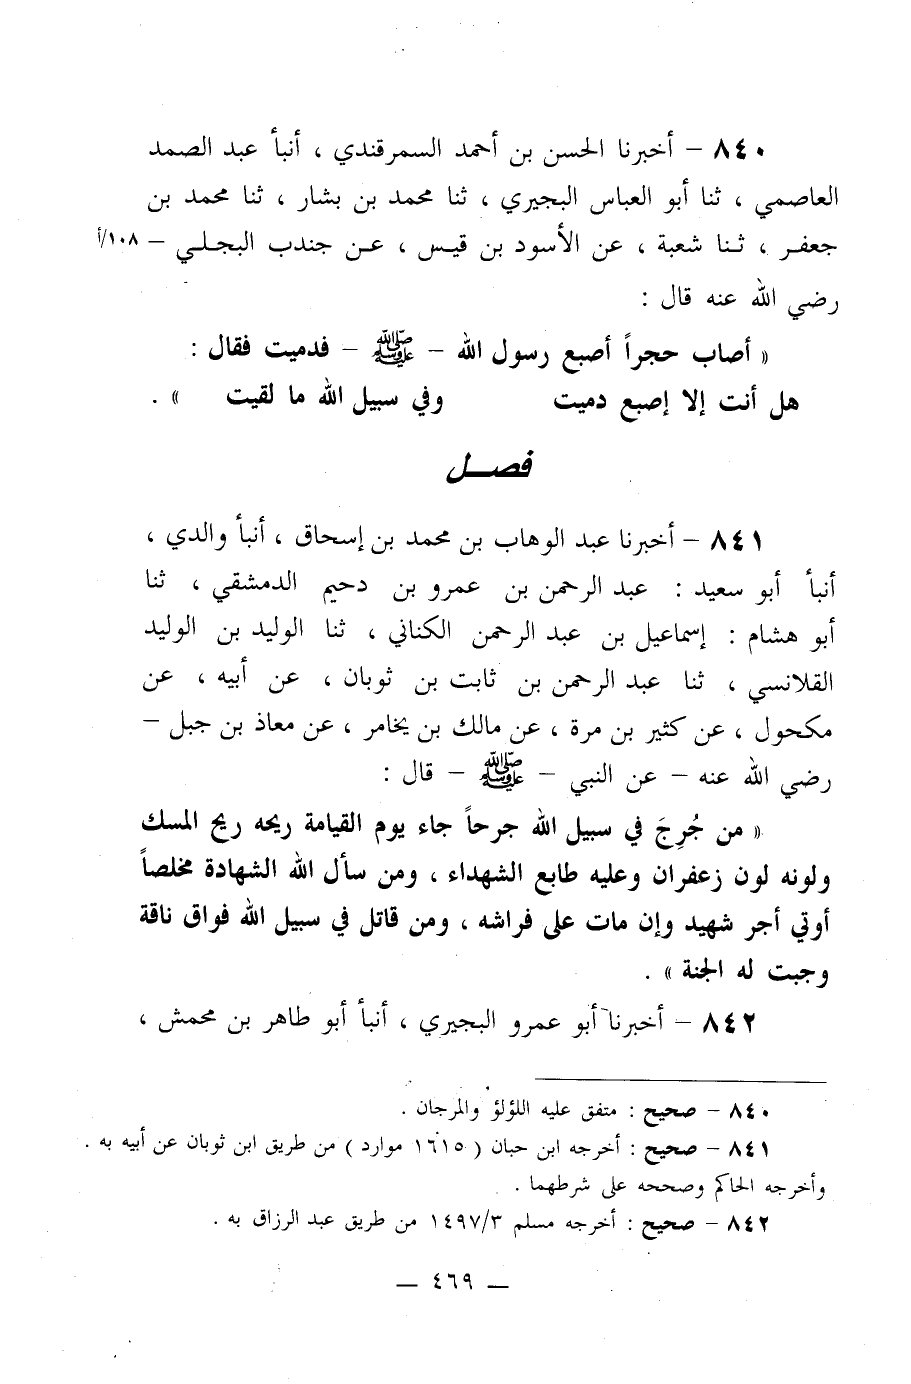 ٨٤٠ – أخبرنا الحسن بن أحمد السمرقندي ، أنبأ عبد الصمد
العاصمي ، ثنا أبو العباس البجيري ، ثنا محمد بن بشار ، ثنا محمد بن
جعفر ، ثنا شعبة ، عن الأسود بن قيس ، عن جندب البجلي – ١٠٨/أ
رضي الله عنه قال :
« أصاب حجراً أصبع رسول الله – ﷺ – فدميت فقال :
هل أنت إلا إصبع دميت وفي سبيل الله ما لقيت » .
فصل
٨٤١ – أخبرنا عبد الوهاب بن محمد بن إسحاق ، أنبأ والدي ،
أنبأ أبو سعيد : عبد الرحمن بن عمرو بن دحيم الدمشقي ، ثنا
أبو هشام : إسماعيل بن عبد الرحمن الكناني ، ثنا الوليد بن الوليد
القلانسي ، ثنا عبد الرحمن بن ثابت بن ثوبان ، عن أبيه ، عن
مكحول ، عن كثير بن مرة ، عن مالك بن يخامر ، عن معاذ بن جبل –
رضي الله عنه – عن النبي – ﷺ – قال :
« من جُرِحَ في سبيل الله جرحاً جاء يوم القيامة ريحه ريح المسك
ولونه لون زعفران وعليه طابع الشهداء ، ومن سأل الله الشهادة مخلصاً
أوتي أجر شهيد وإن مات على فراشه ، ومن قاتل في سبيل الله فواق ناقة
وجبت له الجنة » .
٨٤٢ – أخبرنا أبو عمرو البجيري ، أنبأ أبو طاهر بن محمش ،
٨٤٠ – صحيح : متفق عليه اللؤلؤ والمرجان .
٨٤١ – صحيح : أخرجه ابن حبان ( ١٦١٥ موارد ) من طريق ابن ثوبان عن أبيه به .
وأخرجه الحاكم وصححه على شرطهما .
٨٤٢ – صحيح : أخرجه مسلم ١٤٩٧/٣ من طريق عبد الرزاق به .
– ٤٦٩ –